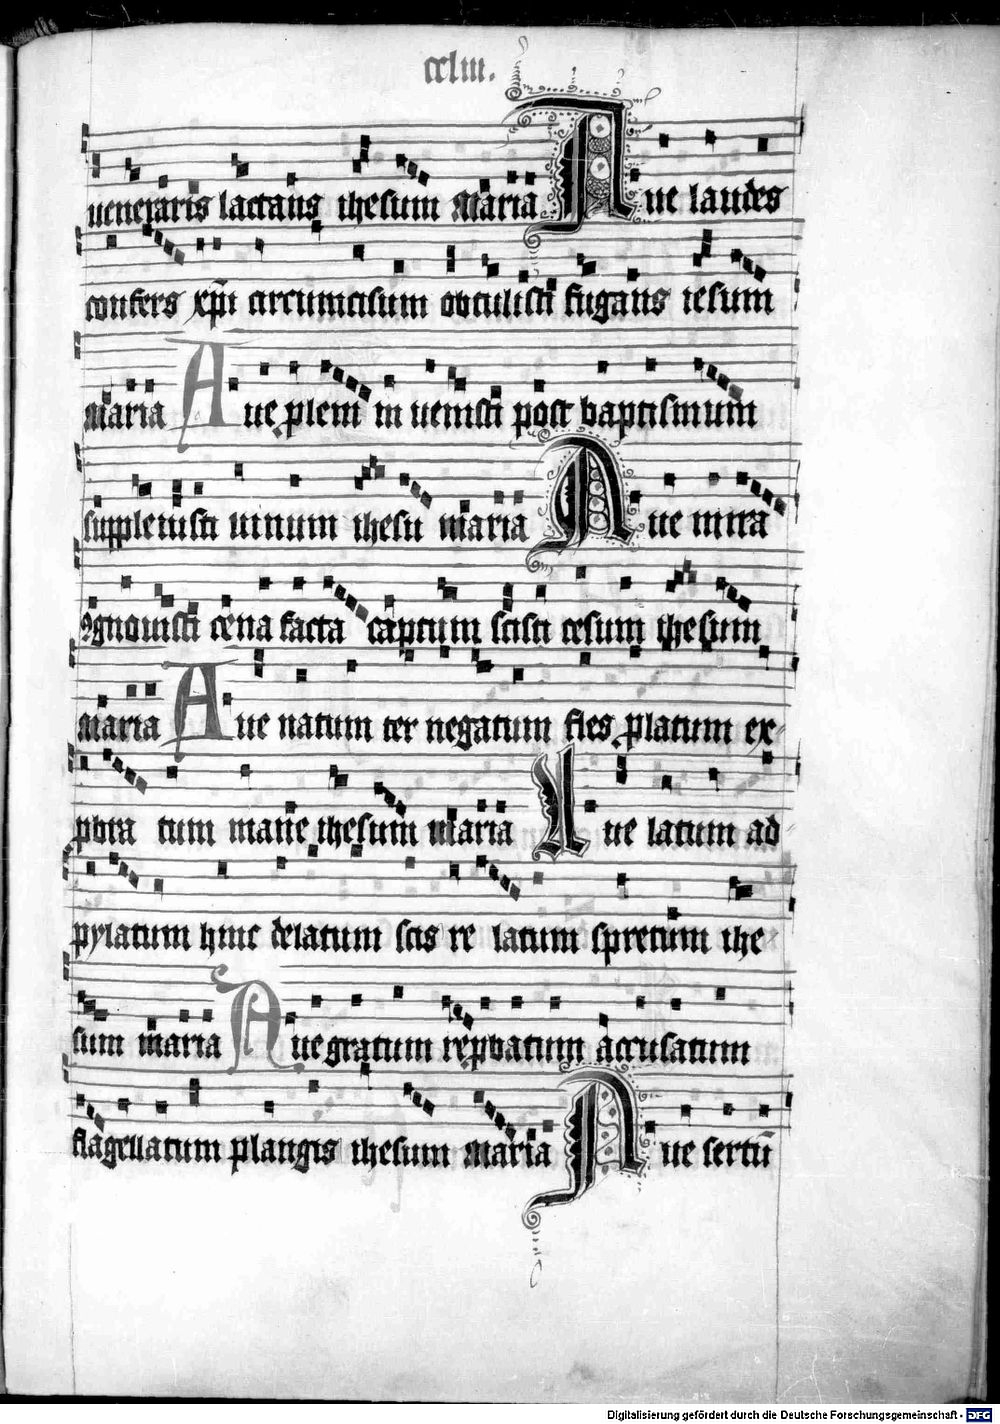 cclııı.
ueneraris lactans ihesum maria Aue laudes
confers xpi circumcisum obtulisti fugans iesum
maria Aue plem in uenisti post baptismum
suppleuisti uinum ihesu maria Aue mira
ꝯgnouisti cena facta captum scisti cesum ihesum
maria Aue natum ter negatum fles platum ex-
pbra tum mane ihesum maria Aue latum ad
pylatum hinc delatum scis re latum spretum ihe
sum maria Aue gratum repbatum accusatum
flagellatum plangis ihesum maria Aue sertū
Digitalisierung gefördert durch die Deutsche Forschungsgemeinschaft - DFG